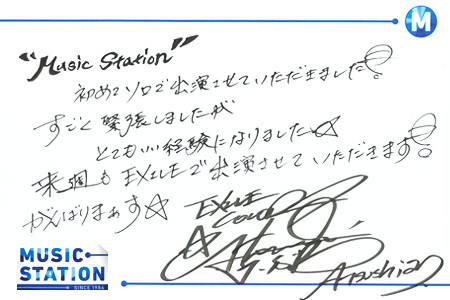 M
"Music Station"
初めてソロで出演させていただきました!
すごく緊張しましたが
とてもいい経験になりました☆
来週もEXILEで出演させていただきます!
がんばりまぁす☆
EXILE
Atsushi
MUSIC
STATION
SINCE 1986